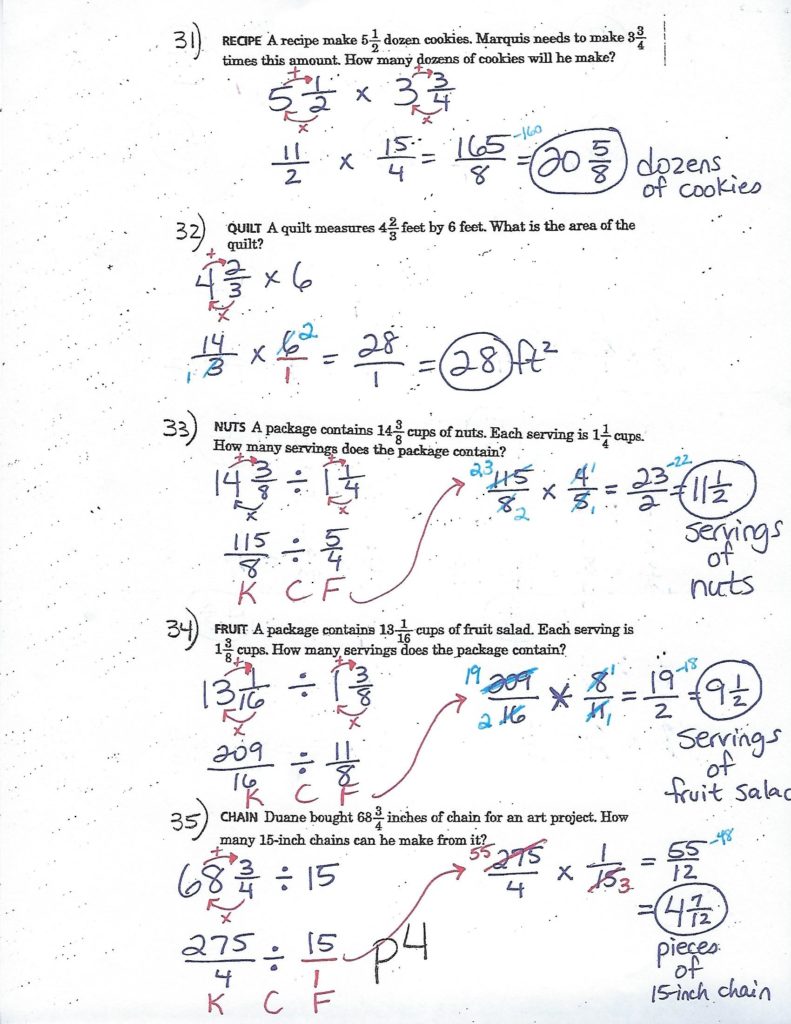 31) RECIPE A recipe make 5 1/2 dozen cookies. Marquis needs to make 3 3/4
times this amount. How many dozens of cookies will he make?
+ +
5 1/2 x 3 3/4
x x
11/2 x 15/4 = 165/8 -160 = 20 5/8 dozens
of cookies
32) QUILT A quilt measures 4 2/3 feet by 6 feet. What is the area of the
quilt?
+
4 2/3 x 6
x
14/3 1 x 6/1 2 = 28/1 = 28 ft²
33) NUTS A package contains 14 3/8 cups of nuts. Each serving is 1 1/4 cups.
How many servings does the package contain?
+ +
14 3/8 ÷ 1 1/4
x x
23 115/8 2 x 4/5 1 1 = 23/2 -22 = 11 1/2
servings
of
nuts
115/8 ÷ 5/4
K C F
34) FRUIT A package contains 13 1/16 cups of fruit salad. Each serving is
1 3/8 cups. How many servings does the package contain?
+ +
13 1/16 ÷ 1 3/8
x x
19 209/16 2 x 8/11 1 1 = 19/2 -18 = 9 1/2
servings
of
fruit salad
209/16 ÷ 11/8
K C F
35) CHAIN Duane bought 68 3/4 inches of chain for an art project. How
many 15-inch chains can he make from it?
+
68 3/4 ÷ 15
x
55 275/4 x 1/15 3 = 55/12 -48
= 4 7/12
pieces
of
15-inch chain
275/4 ÷ 15/1
K C F
p4